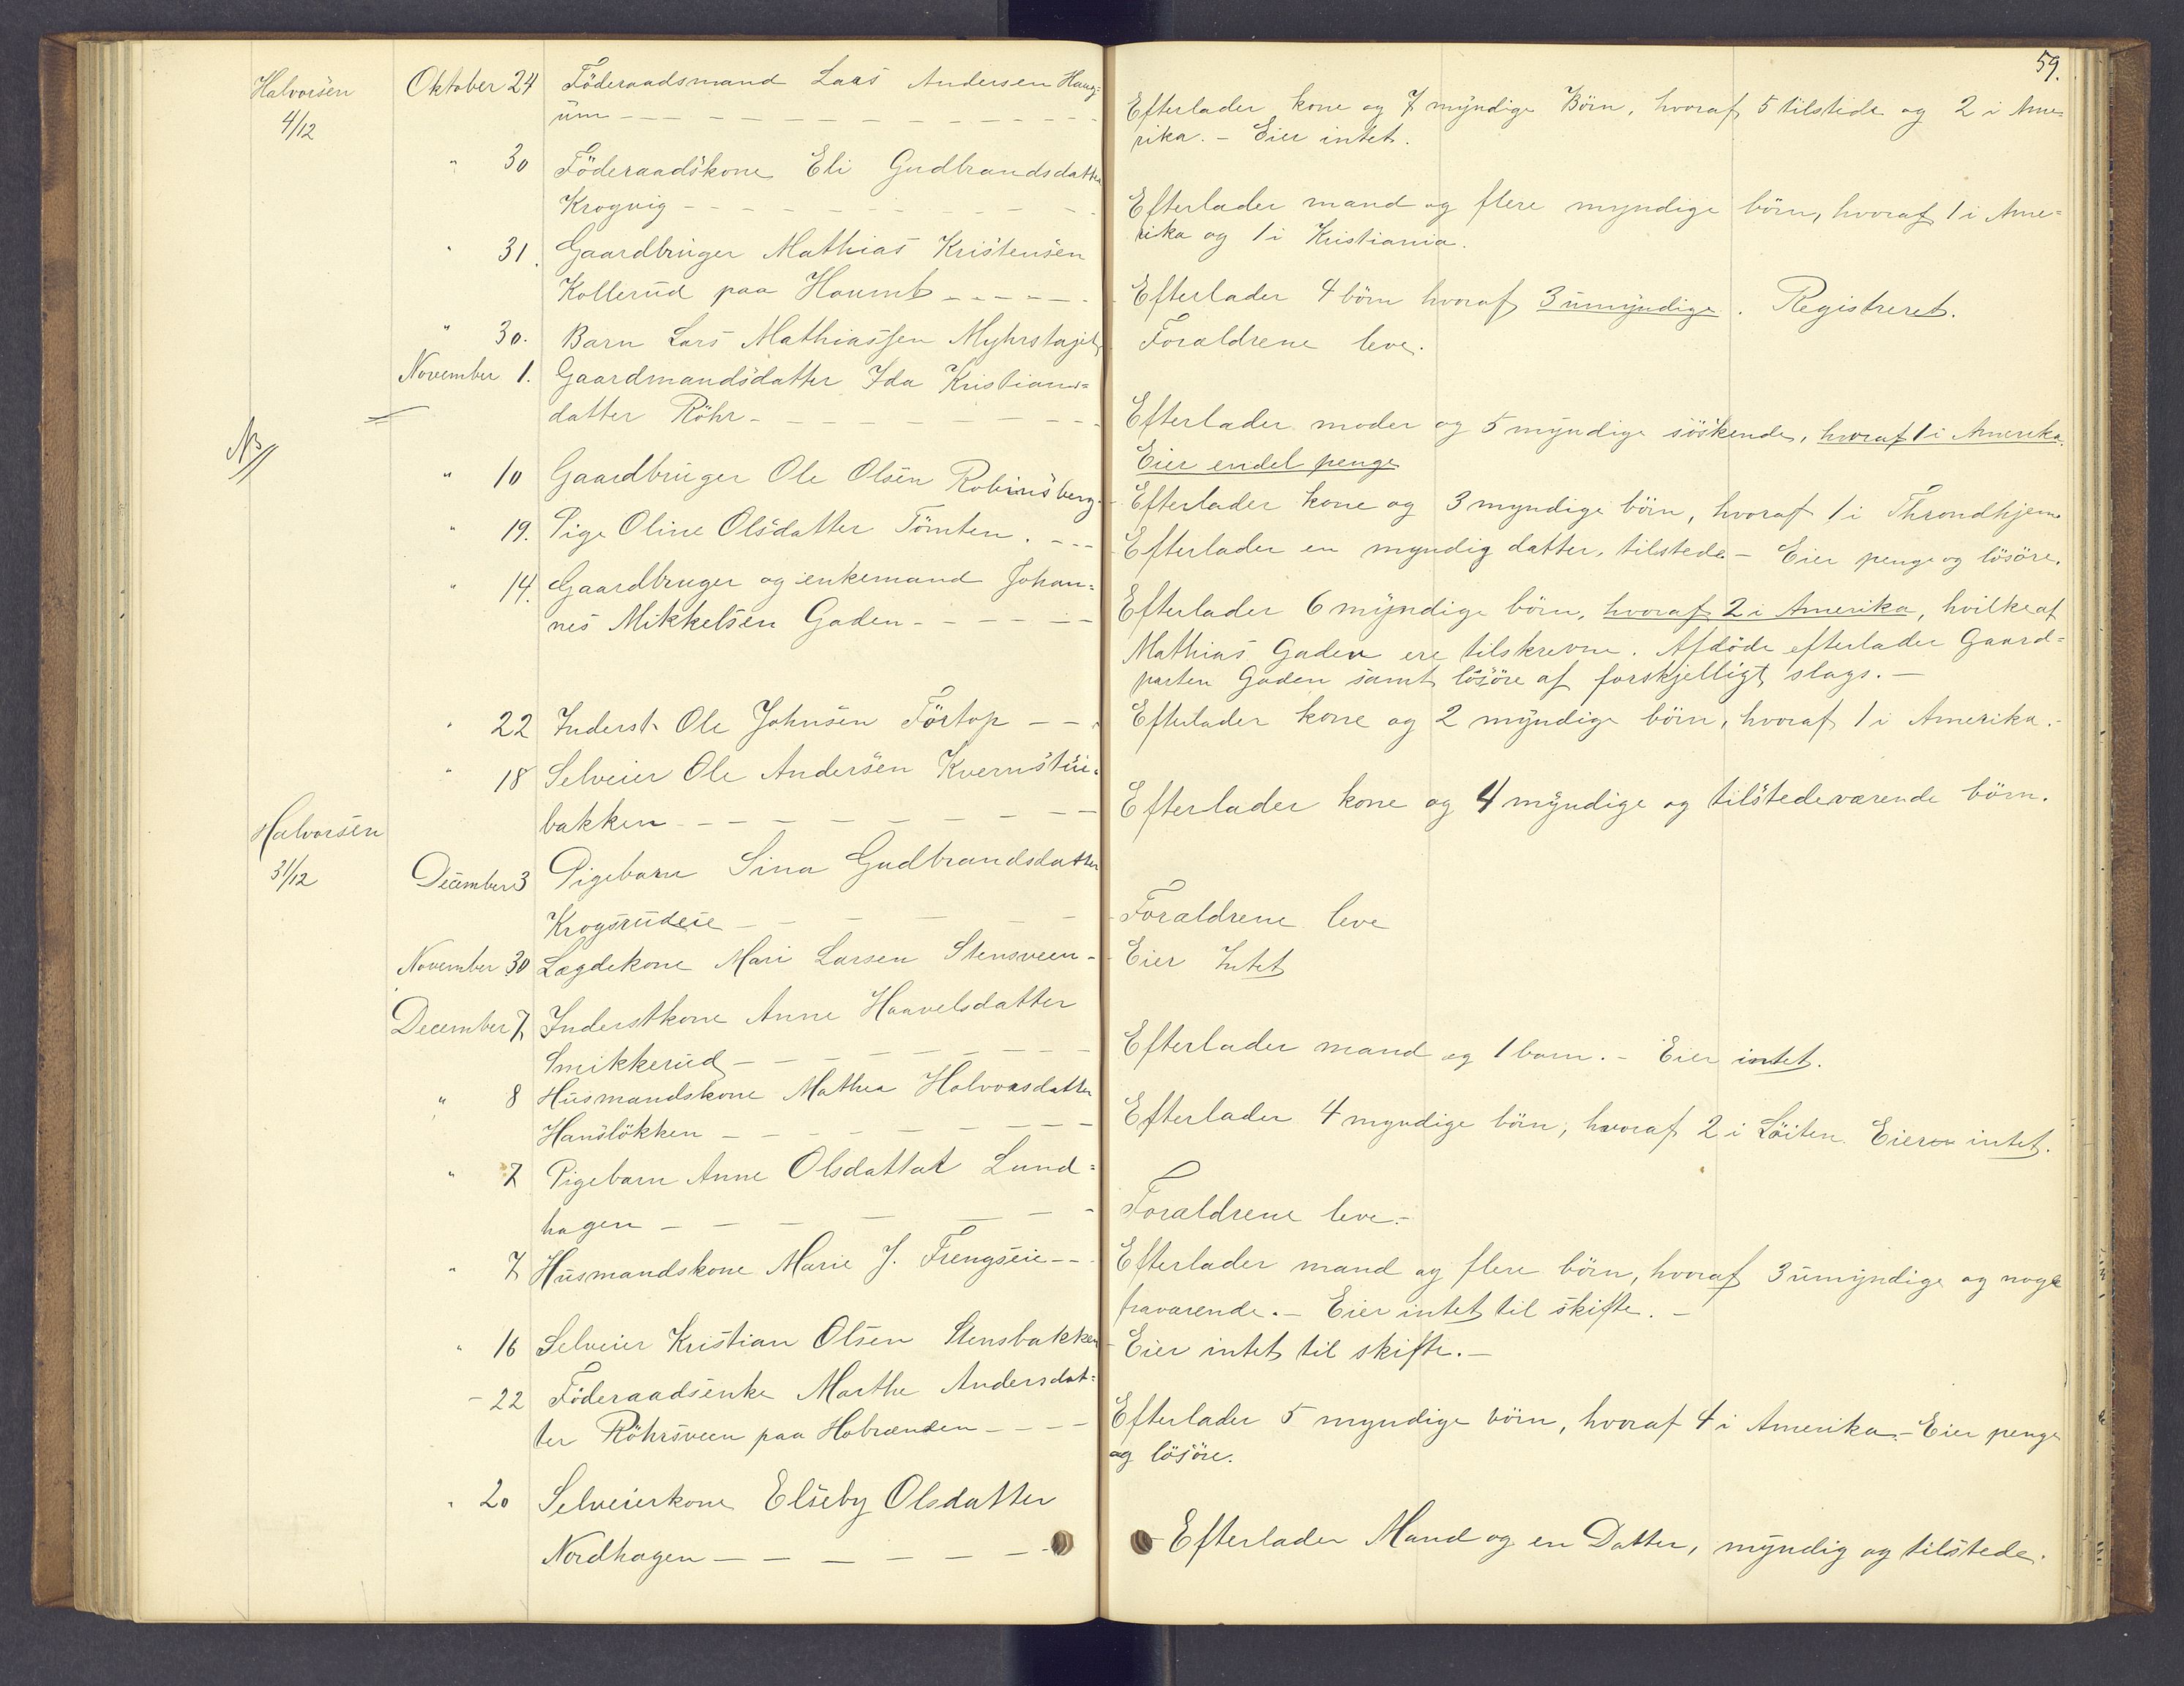 59.
Halvorsen
4/12
Oktober 24 Föderaadsmand Laas Andersen Haug-
um
Efterlader kone og 7 myndige Börn, hvoraf 5 tilstede og 2 i Ame-
rika. - Eier intet.
" 30 Föderaadskone Eli Gudbrandsdatter
Krogvig
Efterlader mand og flere myndige börn, hvoraf 1 i Ame-
rika og 1 i Kristiania.
" 31. Gaardbruger Mathias Kristensen
Kollerud paa Houmb
Efterlader 4 börn hvoraf 3 umyndige. Registreret.
" 30. Barn Lars Mathiassen Myhrstajet
Foraldrene leve.
November 1. Gaardmandsdatter Ida Kristians-
datter Röhr
Efterlader moder og 5 myndige söskende, hvoraf 1 i Amerika.
Eier endel penge
NB
" 10 Gaardbruger Ole Olsen Robinsberg
Efterlader kone og 3 myndige börn, hvoraf 1 i Throndhjem
" 19. Pige Oline Olsdatter Tömten.
Efterlader en myndig datter, tilstede - Eier penge og lösöre.
" 14. Gaardbruger og enkemand Johan-
nes Mikkelsen Gaden
Efterlader 6 myndige börn, hvoraf 2 i Amerika, hvilke af
Mathias Gaden ere tilskrevne. Afdöde efterlader Gaard-
parten Gaden samt lösöre af forskjelligt slags. -
" 22 Inderst Ole Johnsen Förtop
Efterlader kone og 2 myndige börn, hvoraf 1 i Amerika.-
" 18 Selveier Ole Andersen Kvernstu-
bakken
Efterlader kone og 4 myndige og tilstedeværende börn.
Halvorsen
31/12
December 3 Pigebarn Sina Gudbrandsdatter
Krogsrudeie
Foraldrene leve
November 30 Lægdekone Mari Larsen Stensveen -
Eier Intet
December 7 Inderstkone Anne Haavelsdatter
Smikkerud
Efterlader mand og 1 barn. - Eier intet.
" 8 Husmandskone Mathea Halvorsdatter
Hanslökken
Efterlader 4 myndige börn, hvoraf 2 i Löiten. Eier intet.
" 7 Pigebarn Anne Olsdattat Lund-
hagen
Foraldrene leve.-
" 7 Husmandskone Marie J. Frengseie
Efterlader mand og flere börn, hvoraf 3 umyndige og nogle
fraværende. - Eier intet til skifte. -
" 16 Selveier Kristian Olsen Stensbakken
Eier intet til skifte. -
- 22 Föderaadsenke Marthe Andersdat-
ter Röhrsveen paa Hobrænden
Efterlader 5 myndige börn, hvoraf 4 i Amerika - Eier penge
og lösöre.
" 20 Selveierkone Elseby Olsdatter
Nordhagen
- Efterlader Mand og en Datter, myndig og tilstede.